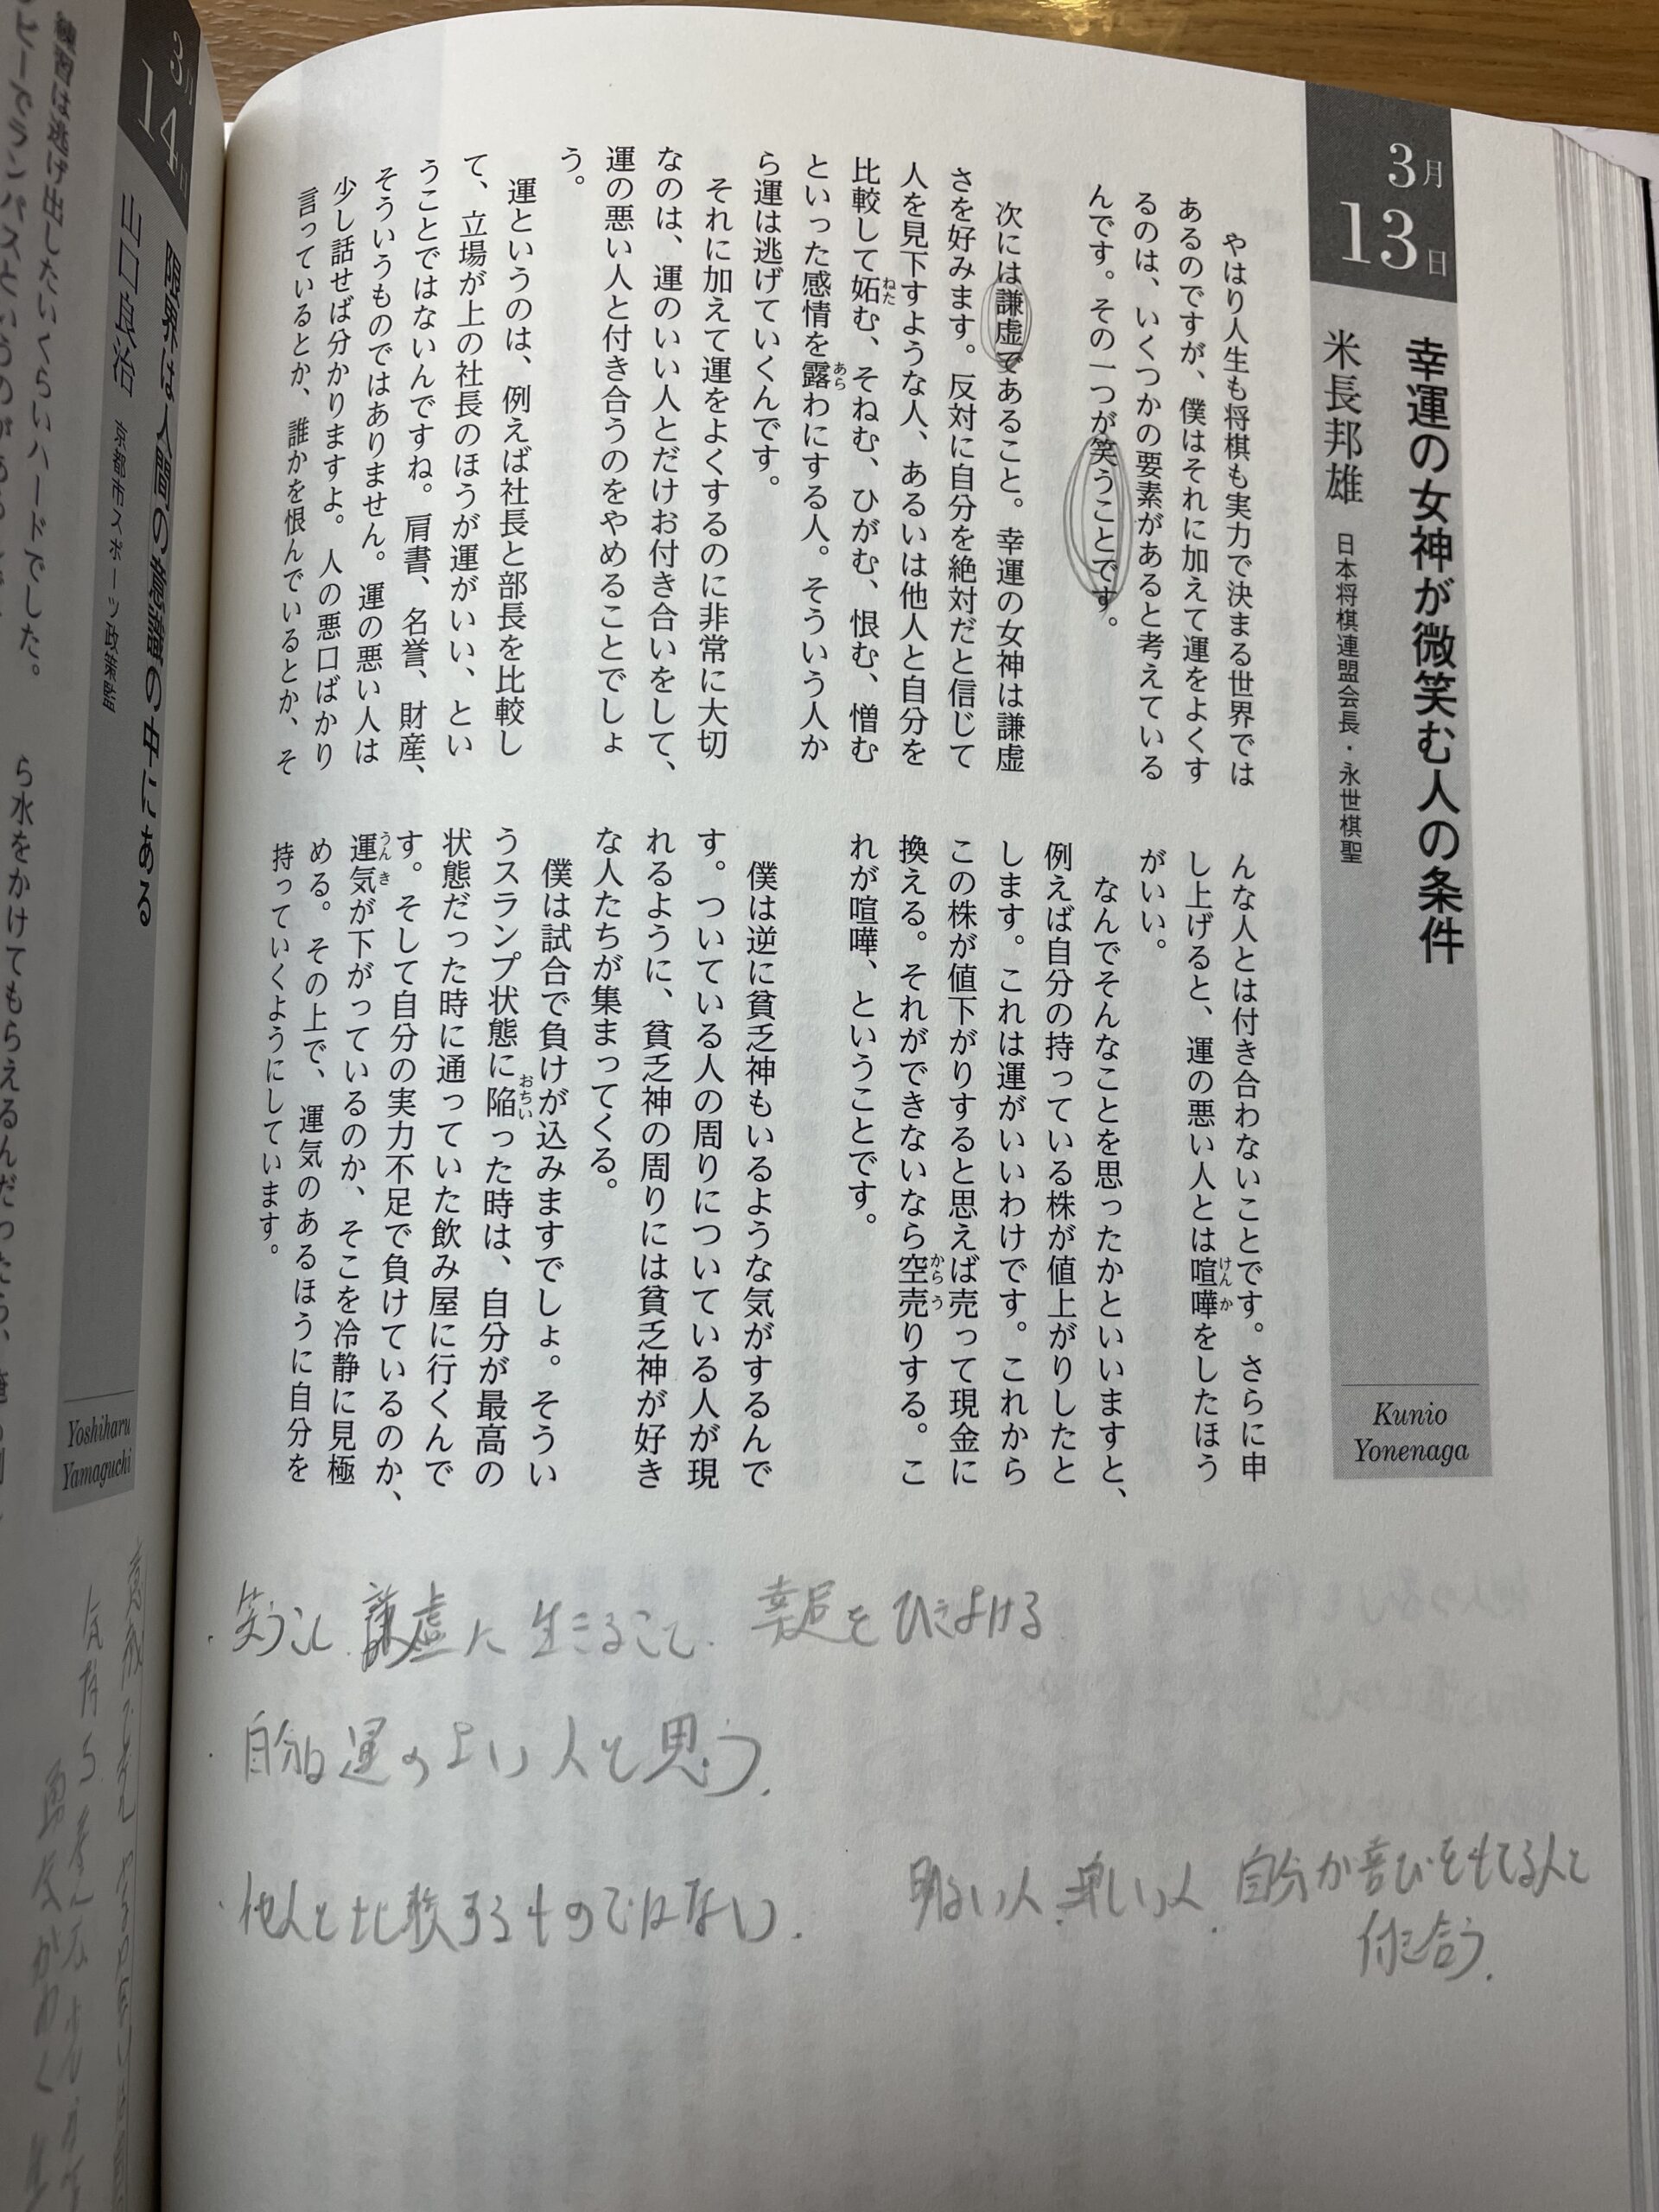 3月
13日
幸運の女神が微笑む人の条件
米長邦雄 日本将棋連盟会長・永世棋聖
Kunio
Yonenaga
やはり人生も将棋も実力で決まる世界では
あるのですが、僕はそれに加えて運をよくす
るのは、いくつかの要素があると考えている
んです。その一つが笑うことです。
次には謙虚であること。幸運の女神は謙虚
さを好みます。反対に自分を絶対だと信じて
人を見下すような人、あるいは他人と自分を
比較して妬ねたむ、そねむ、ひがむ、恨む、憎む
といった感情を露あらわにする人。そういう人か
ら運は逃げていくんです。
それに加えて運をよくするのに非常に大切
なのは、運のいい人とだけお付き合いをして、
運の悪い人と付き合うのをやめることでしょ
う。
運というのは、例えば社長と部長を比較し
て、立場が上の社長のほうが運がいい、とい
うことではないんですね。肩書、名誉、財産、
そういうものではありません。運の悪い人は
少し話せば分かりますよ。人の悪口ばかり
言っているとか、誰かを恨んでいるとか、そ
んな人とは付き合わないことです。さらに申
し上げると、運の悪い人とは喧嘩けんかをしたほう
がいい。
なんでそんなことを思ったかといいますと、
例えば自分の持っている株が値上がりしたと
します。これは運がいいわけです。これから
この株が値下がりすると思えば売って現金に
換える。それができないなら空売からうりする。こ
れが喧嘩、ということです。
僕は逆に貧乏神もいるような気がするんで
す。ついている人の周りについている人が現
れるように、貧乏神の周りには貧乏神が好き
な人たちが集まってくる。
僕は試合で負けが込みますでしょ。そうい
うスランプ状態に陥おちいった時は、自分が最高の
状態だった時に通っていた飲み屋に行くんで
す。そして自分の実力不足で負けているのか、
運気うんきが下がっているのか、そこを冷静に見極
める。その上で、運気のあるほうに自分を
持っていくようにしています。
・笑うこと 謙虚に生きること. 幸運をひきよせる
・自分は運のよい人と思う.
・他人と比較するものではない.
明るい人.楽しい人.自分が喜びをもてる人と
付き合う.
3月
14日
限界は人間の意識の中にある
山口良治 京都市スポーツ政策監
Yoshiharu
Yamaguchi
練習は逃げ出したいくらいハードでした。